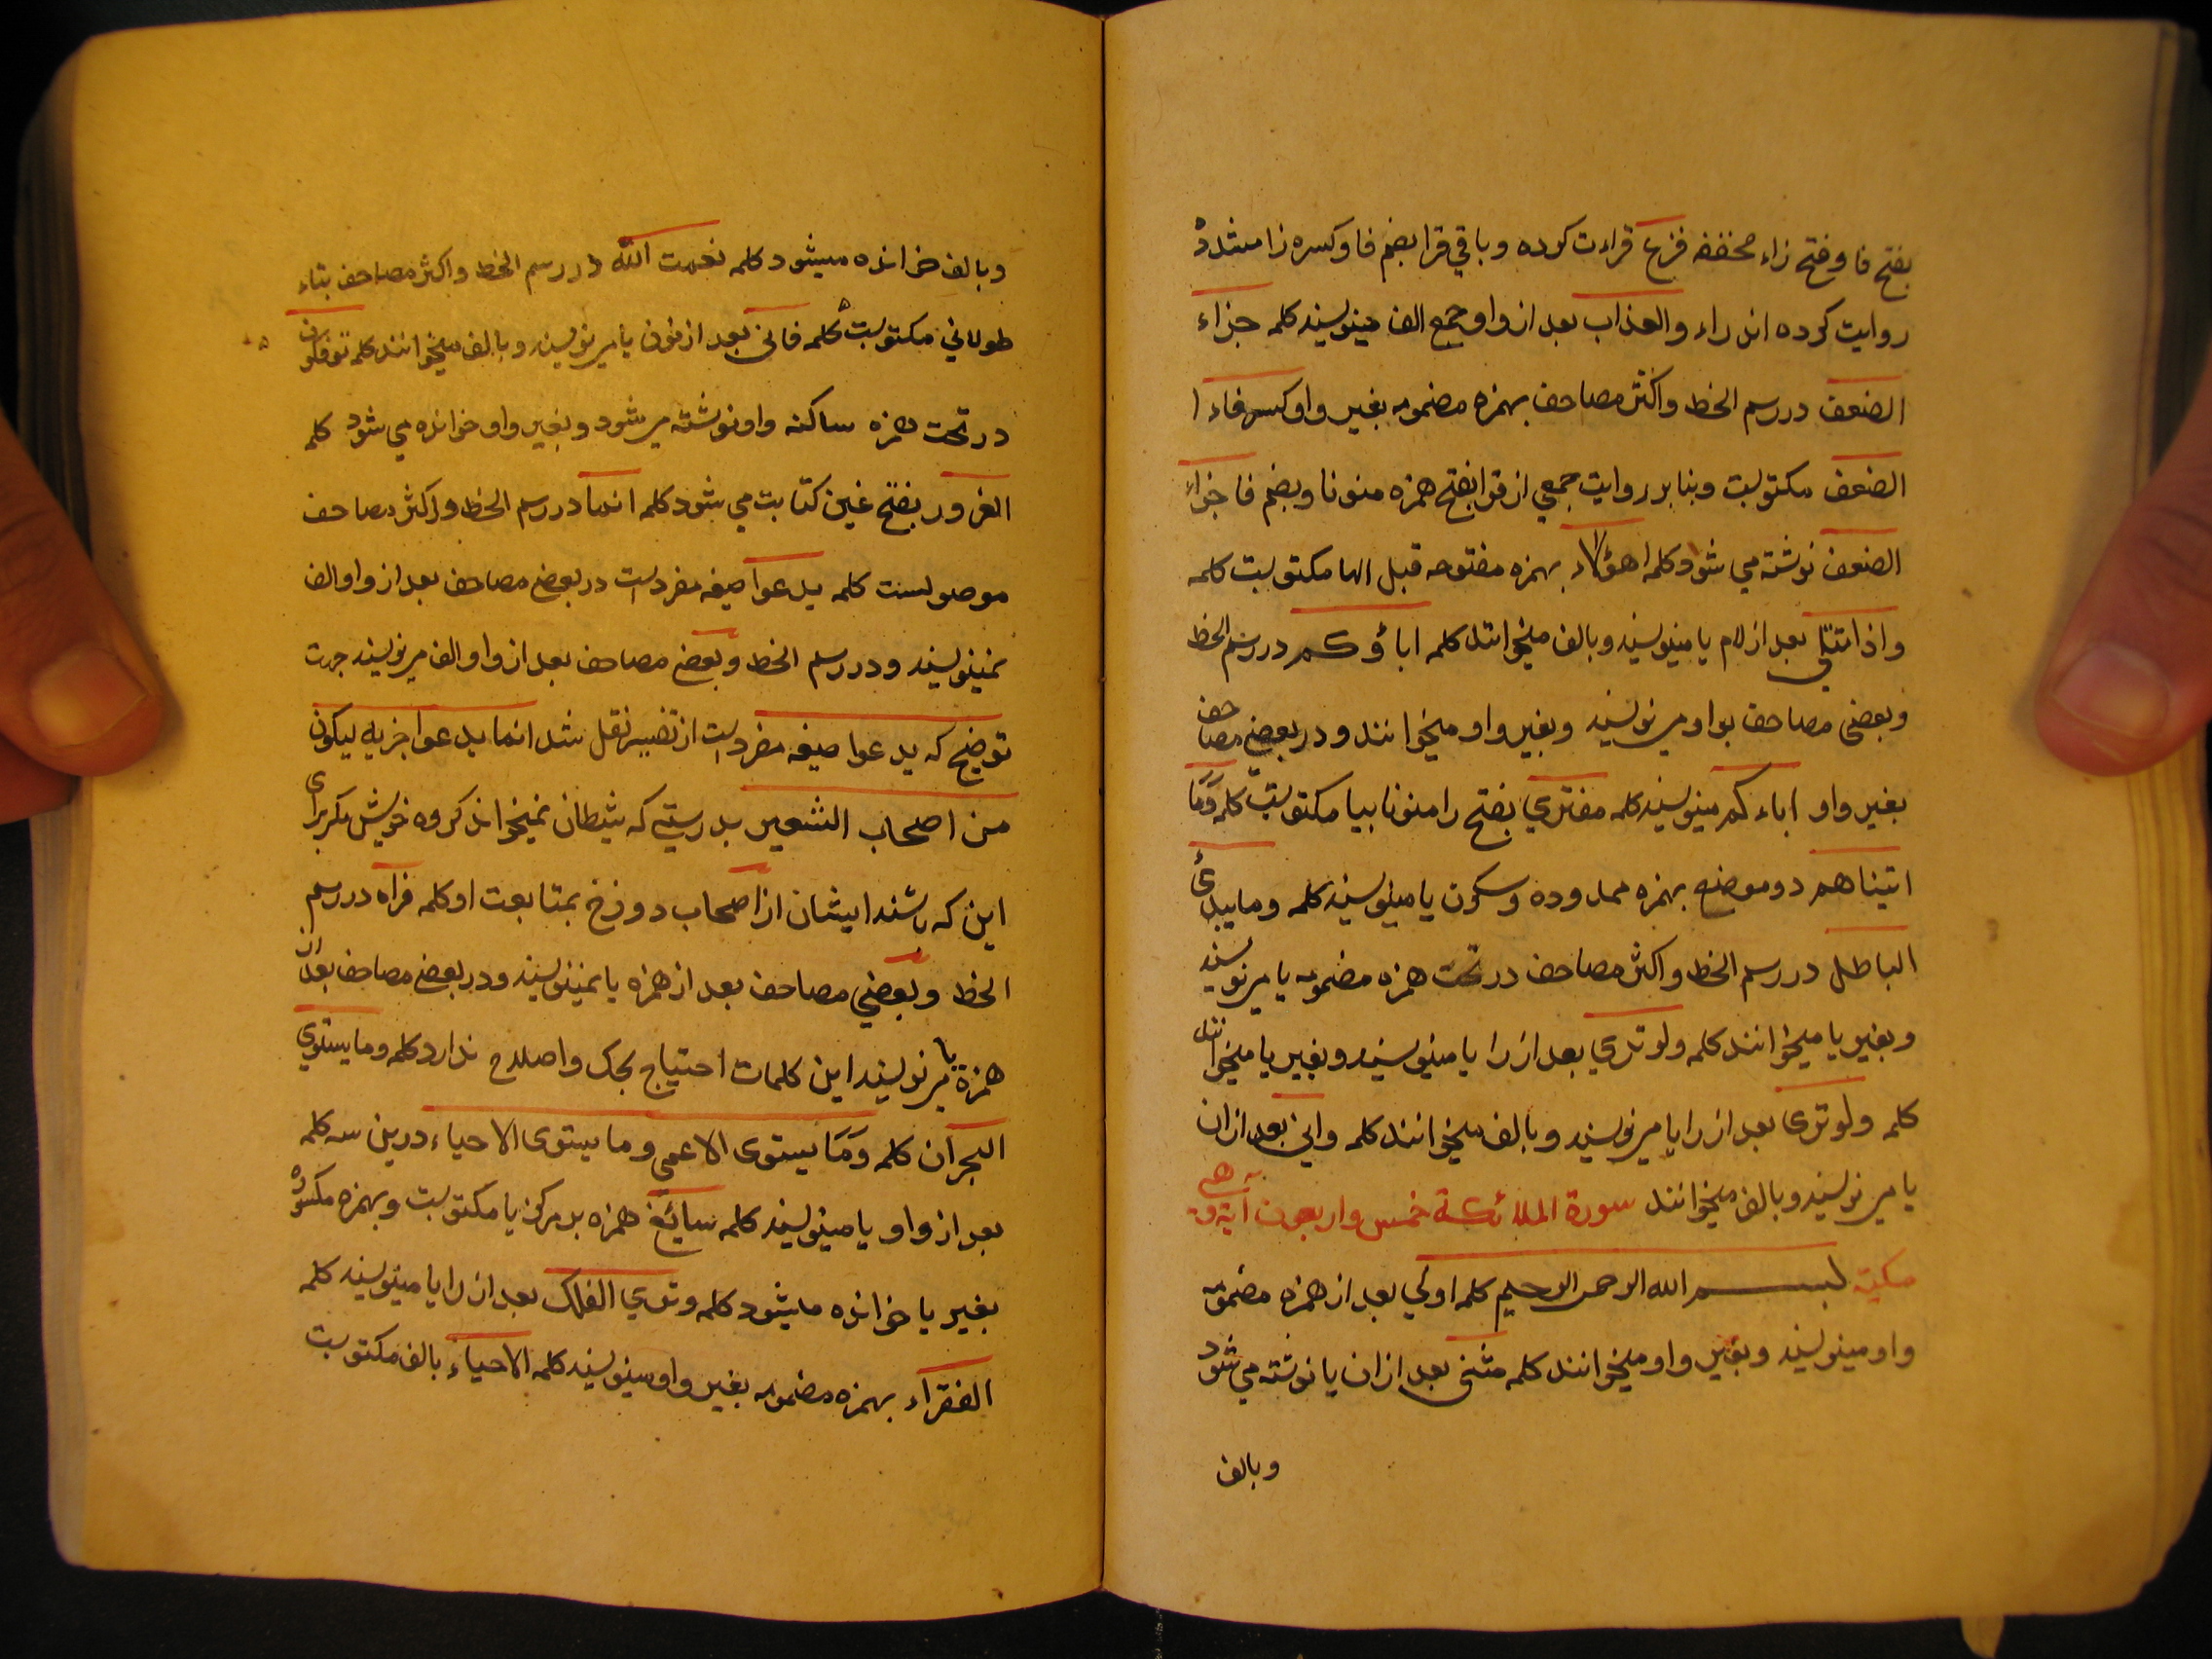 بفتح فا وفتح زاء مخففه فزع قراءت کرده وباقي قرا بضم فا وکسره زا مشدده
روایت کرده اند راء والعذاب بعد از واو جمع الف مینویسند کلمه جزاء
الضعف در رسم الخط واکثر مصاحف بهمزه مضمومه بغیر واو
الضعف مکتوبست وبنا بر روایت جمعي از قرا بفتح همزه منونا وبضم فا جزاء
الضعف نوشته مي شود کلمه اهؤلاء بهمزه مفتوحه قبل الها مکتوبست کلمه
واذا تتلي بعد از لام یا مینویسند وبالف میخوانند کلمه اباؤکم در رسم الخط
وبعضی مصاحف بواو مي نویسند وبغیر واو میخوانند ودر بعضي مصاحف
بغیر واو اباءکم مینویسند کلمه مفتري بفتح را منونا بیا مکتوبست کلمه وَمَا
اتیناهم دو موضع بهمزه ممدوده وسکون یا مینویسند کلمه وما یبدئ
الباطل در رسم الخط واکثر مصاحف در تحت همزه مضمومه یا مي نویسند
وبغیر یا میخوانند کلمه ولو تري بعد از را یا مینویسند وبغیر یا میخوانند
کلمه ولو تری بعد از را یا مي نویسند وبالف میخوانند کلمه واني بعد از ان
یا مي نویسند وبالف میخوانند سورة الملائکة خمس واربعون آیة وهي
مکیة بسم الله الرحمن الرحیم کلمه اولي بعد از همزه مضمومه
واو مینویسند وبغیر واو میخوانند کلمه مثنی بعد از ان یا نوشته مي شود
وبالف
وبالف خوانده میشود کلمه نعمت الله در رسم الخط واکثر مصاحف بتاء
طولاني مکتوبست کلمه فاني بعد از نون یا مي نویسند وبالف میخوانند کلمه توفکون
در تحت همزه ساکنه واو نوشته مي شود وبغیر واو خوانده مي شود کلمه
الغرور بفتح غین کتابت مي شود کلمه انما در رسم الخط واکثر مصاحف
موصولست کلمه یدعوا صیغه مفردست در بعضي مصاحف بعد از واو الف
نمینویسند ودر رسم الخط وبعضي مصاحف بعد از واو الف مي نویسند جهت
توضیح که یدعوا صیغه مفردست از تفسیر نقل شد انما یدعوا حزبه لیکونوا
من اصحاب السعیر بدرستي که شیطان نمیخواند کروه خویش مکر برای
این که باشند ایشان از اصحاب دوزخ بمتابعت او کلمه فراه در رسم
الخط وبعضي مصاحف بعد از همزه یا نمینویسند ودر بعضي مصاحف بعد از
همزه یا مي نویسند این کلمات احتیاج بحک واصلاح ندارد کلمه وما یستوي
البحران کلمه وَمَا یستوی الاعمی وما یستوی الاحیاء درین سه کلمه
بعد از واو یا مینویسند کلمه سائغ همزه بر مرکز یا مکتوبست وبهمزه مکسوره
بغیر یا خوانده میشود کلمه وتري الفلک بعد از را یا مینویسند کلمه
الفقراء بهمزه مضمومه بغیر واو مینویسند کلمه الاحیاء بالف مکتوبست